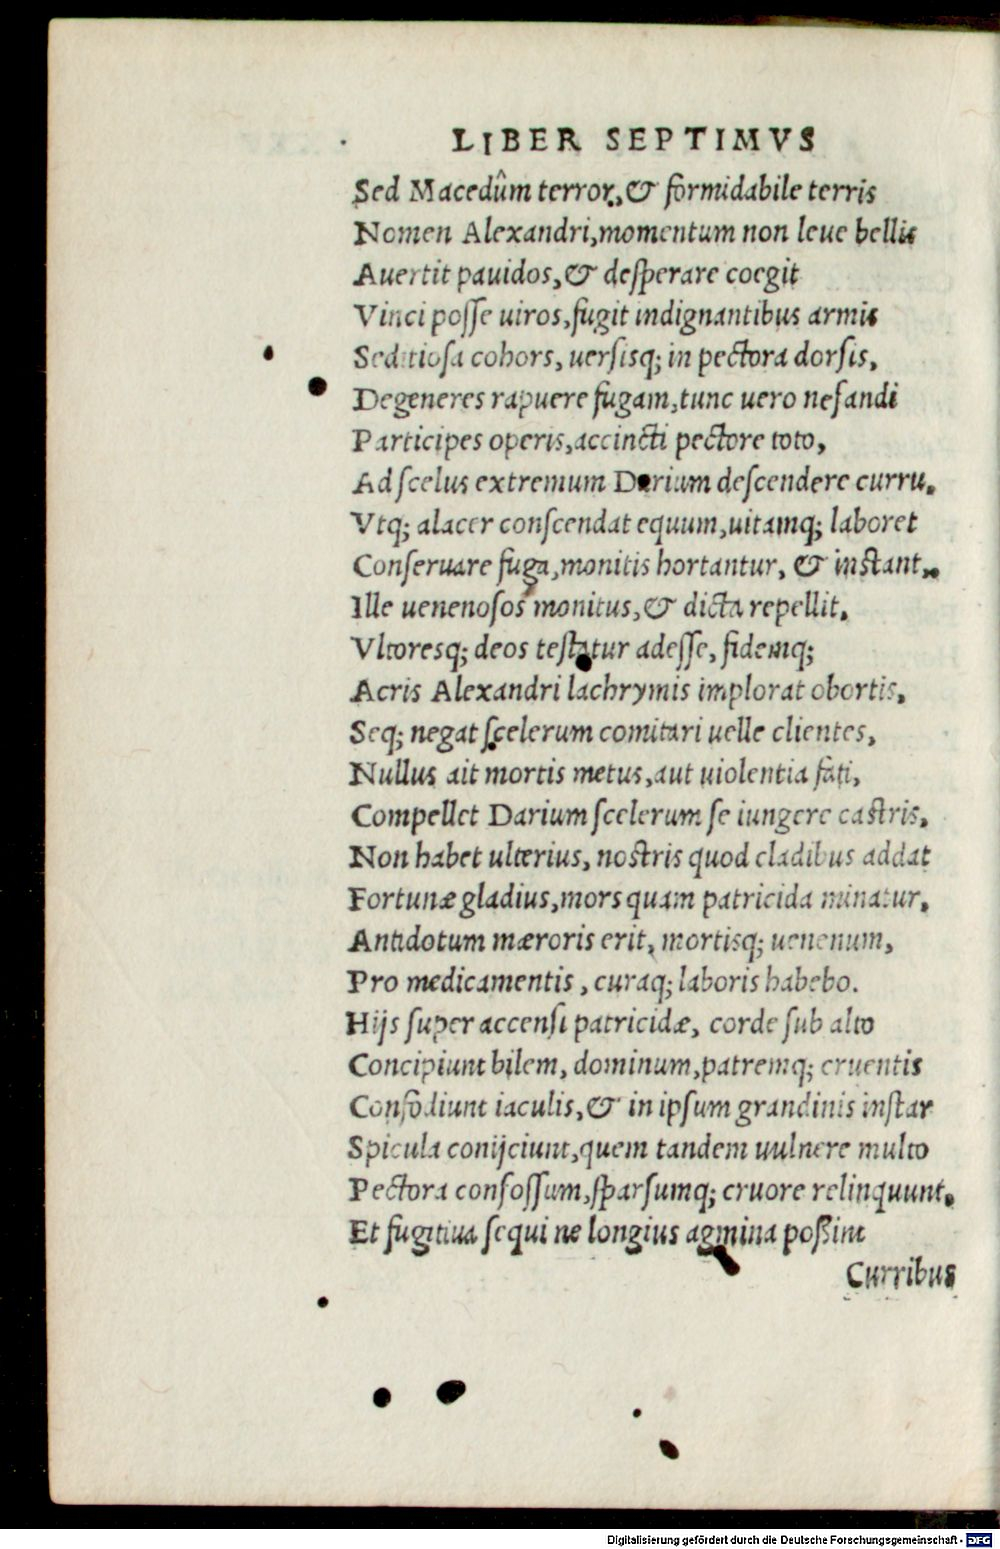 LIBER SEPTIMVS
Sed Macedûm terror, & formidabile terris
Nomen Alexandri, momentum non leue bellis
Auertit pauidos, & desperare coegit
Vinci posse uiros, fugit indignantibus armis
Seditiosa cohors, uersisq; in pectora dorsis,
Degeneres rapuere fugam, tunc uero nefandi
Participes operis, accincti pectore toto,
Ad scelus extremum Darium descendere curru.
Vtq; alacer conscendat equum, uitamq; laboret
Conseruare fuga, monitis hortantur, & instant.
Ille uenenosos monitus, & dicta repellit.
Vltoresq; deos testatur adesse, fidemq;
Acris Alexandri lachrymis implorat obortis,
Seq; negat scelerum comitari uelle clientes,
Nullus ait mortis metus, aut uiolentia fati,
Compellet Darium scelerum se iungere castris.
Non habet ulterius, nostris quod cladibus addat
Fortunæ gladius, mors quam patricida minatur.
Antidotum mæroris erit, mortisq; uenenum,
Pro medicamentis, curaq; laboris habebo.
Hijs super accensi patricidæ, corde sub alto
Concipiunt bilem, dominum, patremq; cruentis
Confodiunt iaculis, & in ipsum grandinis instar
Spicula conijciunt, quem tandem uulnere multo
Pectora confossum, sparsumq; cruore relinquunt.
Et fugitiua sequi ne longius agmina poßint
Curribus
Digitalisierung gefördert durch die Deutsche Forschungsgemeinschaft - DFG